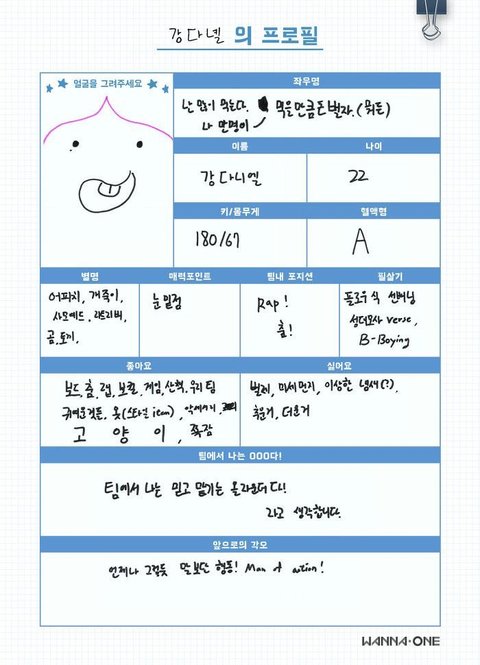 강다넬 의 프로필
얼굴을 그려주세요
좌우명
난 많이 먹는다. 먹을만큼 돈 벌자. (뭐든)
나 만명이
이름
나이
강다니엘
22
키/몸무게
혈액형
180/67
A
별명
매력포인트
팀내 포지션
필살기
어피치, 개죽이,
사모예드,
곰, 토끼,
눈밑점
Rap!
춤!
플로우식 선배님
성대모사 verse,
B-Boying
좋아요
싫어요
보드, 춤, 랩, 보컬, 게임, 산책, 우리팀
귀여운것들, 옷(스타일 icon),
고양이, 쪽잠
벌레, 미세먼지, 이상한 냄새(?),
추운거, 더운거
팀에서 나는 OOO다!
팀에서 나는 믿고 맡기는 올라운더다!
라고 생각합니다.
앞으로의 각오
언제나 그렇듯 말보단 행동! Man of action!
WANNA·ONE